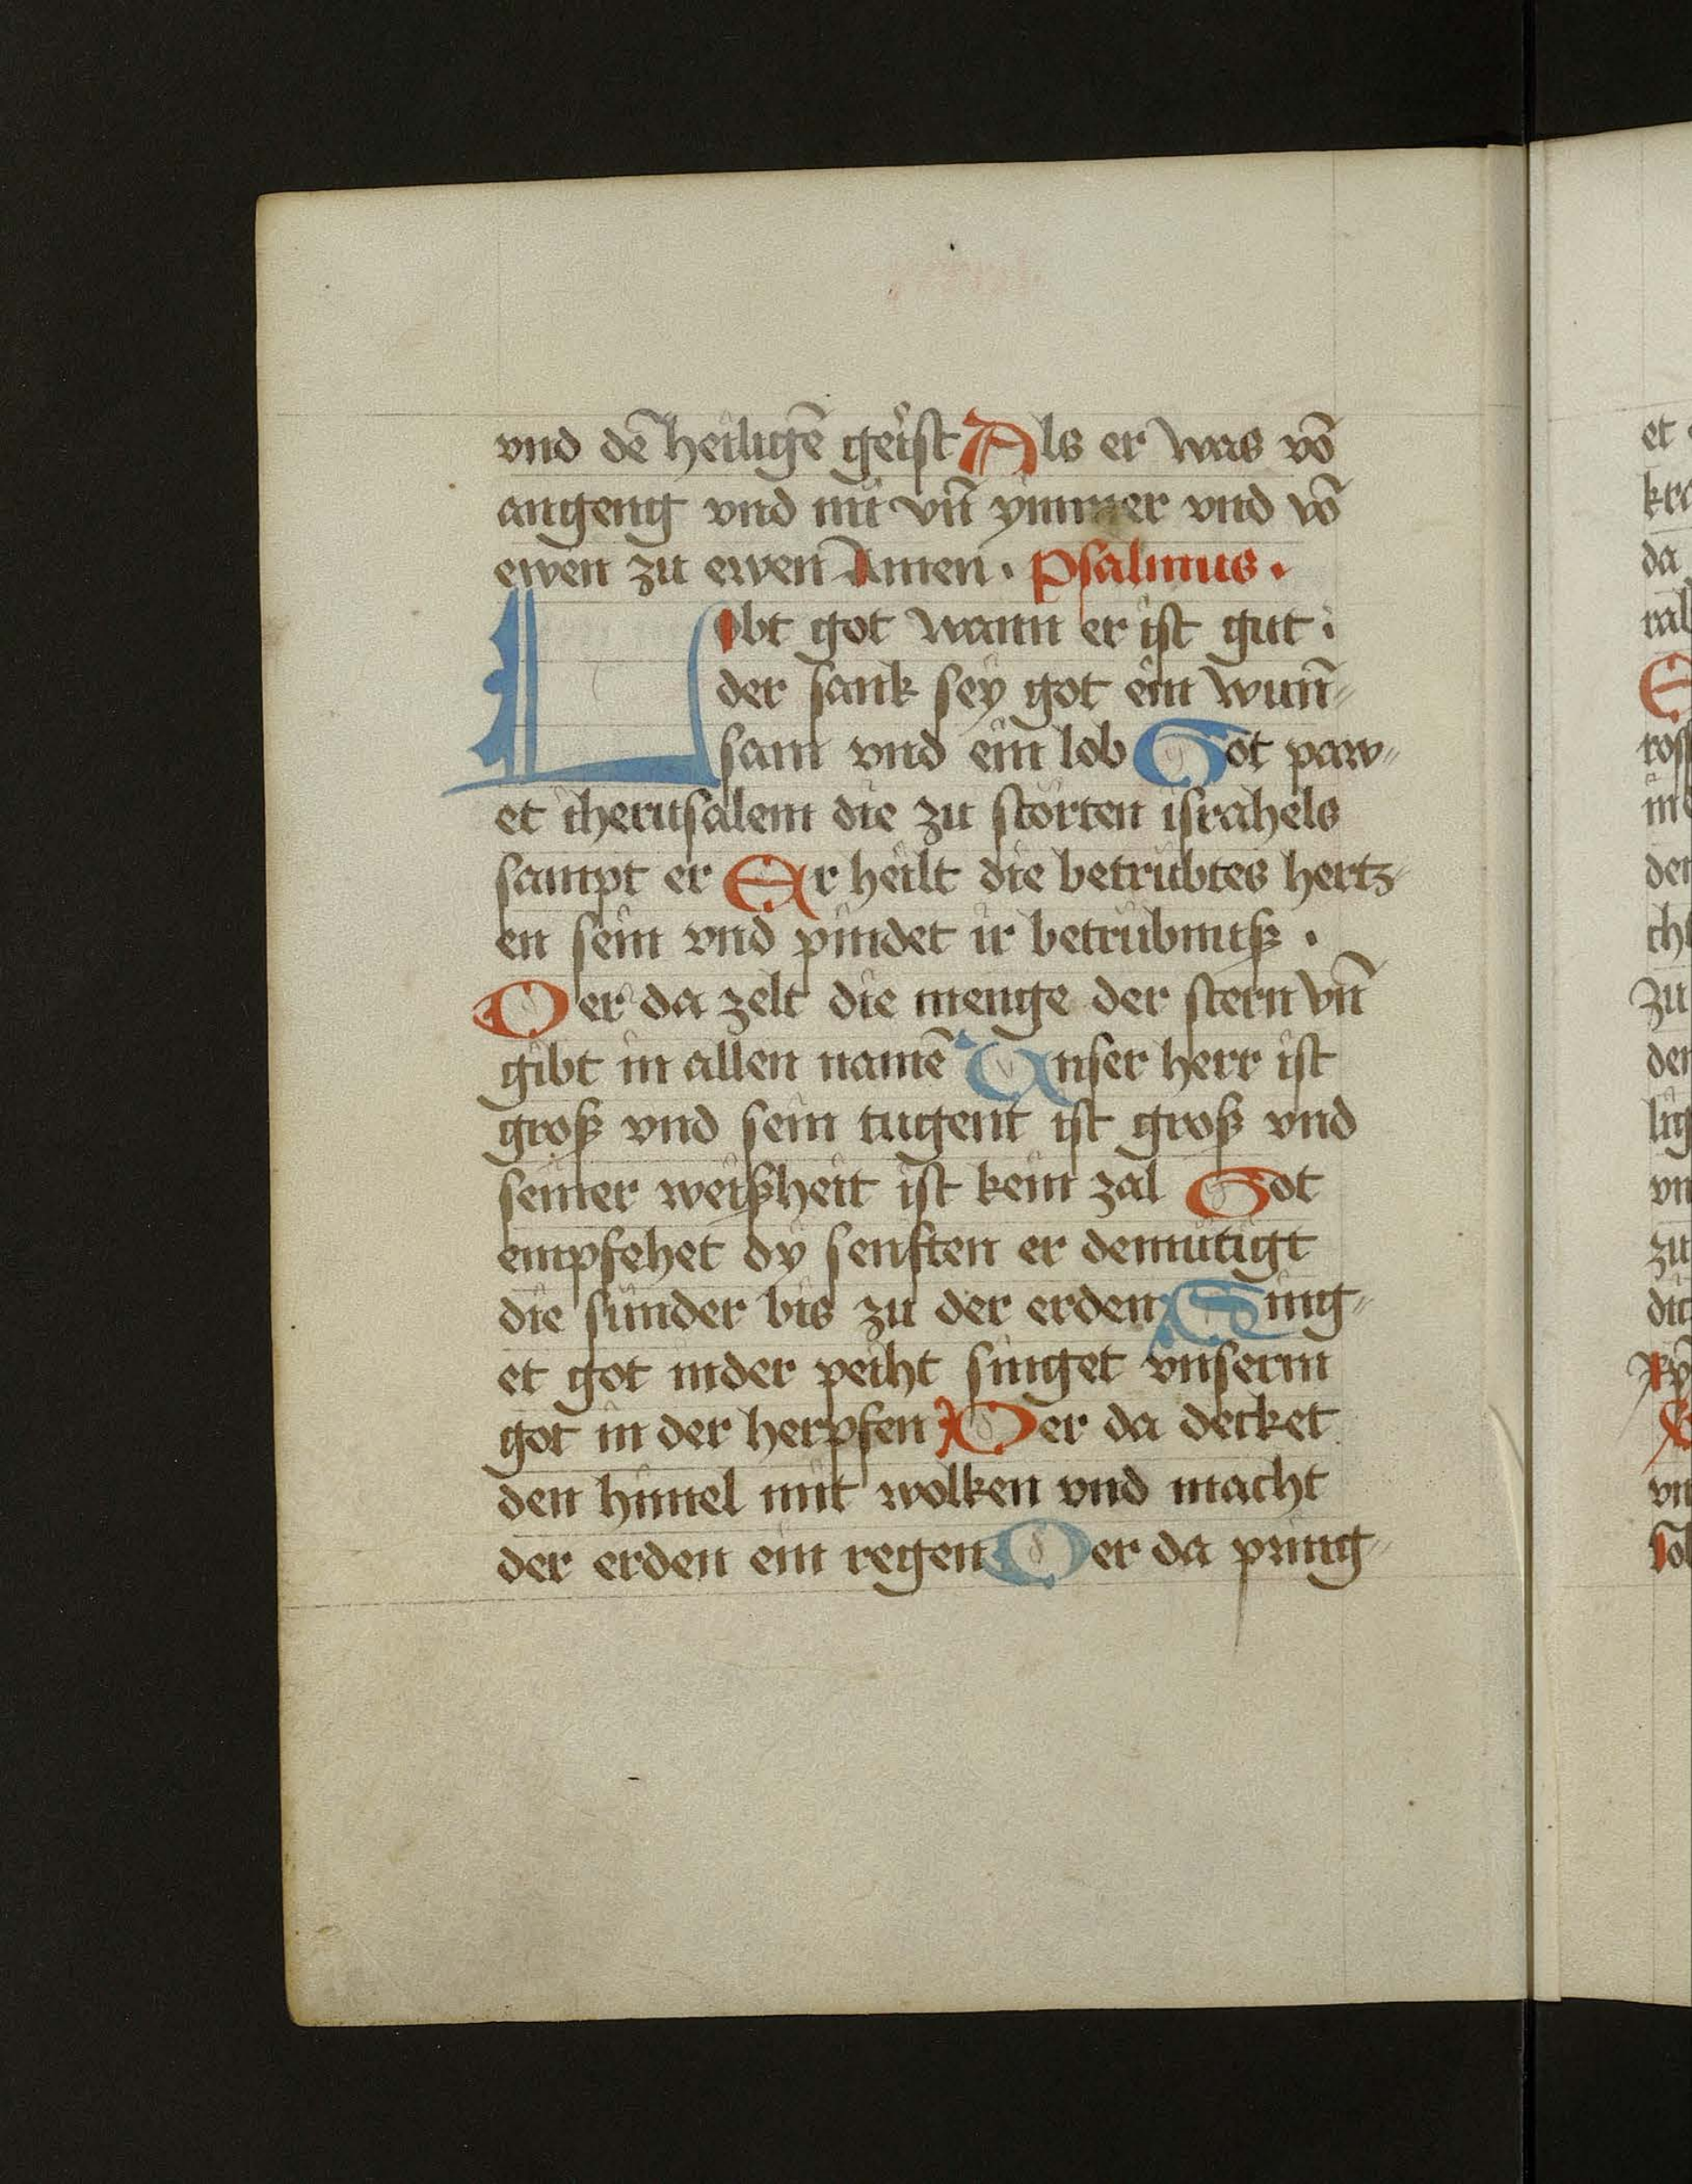 vnd dē heiligē geist Als er was vō
angeng vnd nü vñ ymmer vnd vō
ewen zu ewen Amen . Psalmus .
Lobt got wann er ist gut .
der sank sey got ein wun̄=
sam vnd ein lob Got paw=
et iherusalem die zu störten israhels
sampt er Er heilt die betrübtes hertz=
en sein vnd pindet ir betrübnuß .
Der da zelt die menge der stern vñ
gibt in allen namē Unser herr ist
groß vnd sein tugent ist groß vnd
seiner weißheit ist kein zal Got
empfehet dy senften er demütigt
die sünder bis zu der erden Sing=
et got in der peiht singet vnserm
got in der herpfen Der da decket
den himel mit wolken vnd macht
der erden ein regen Der da pring=